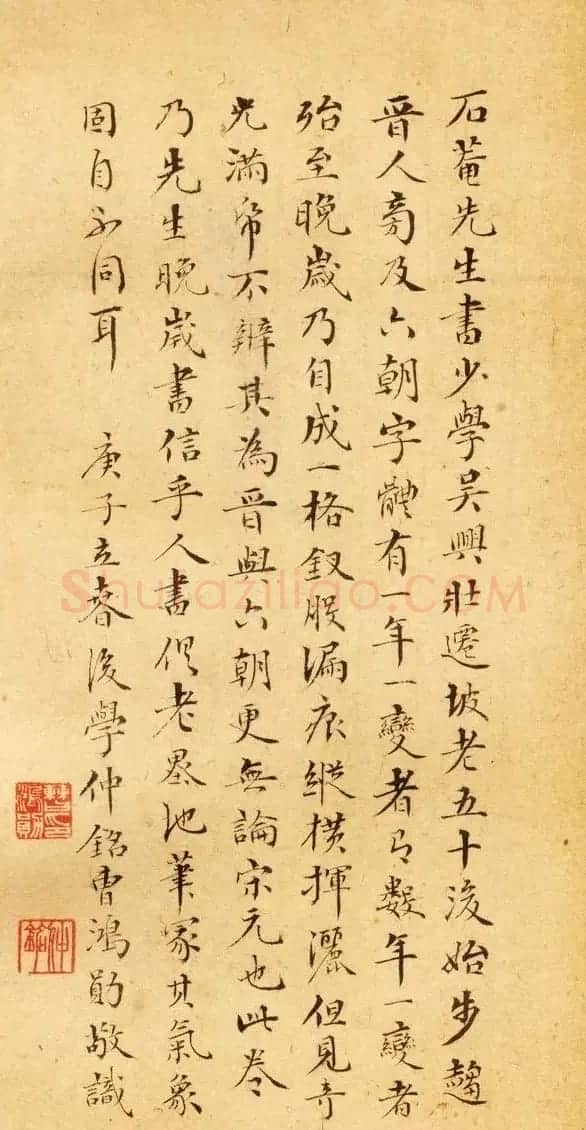 石菴先生書少學吳興壯遷坡老五十後始步趨
晉人旁及六朝字體有一年一變者有數年一變者
殆至晚歲乃自成一格釵股漏痕縱橫揮灑但見奇
光滿帋不辨其為晉與六朝更無論宋元也此卷
乃先生晚歲書信乎人書俱老墨池筆冢其氣象
固自不同耳 庚子立春後學仲銘曹鴻勛敬識
Shufaziliao.COM
仲銘